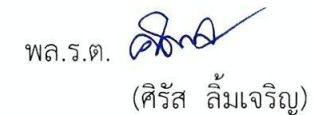 พล.ร.ต.
(ศิรัส ลิ้มเจริญ)